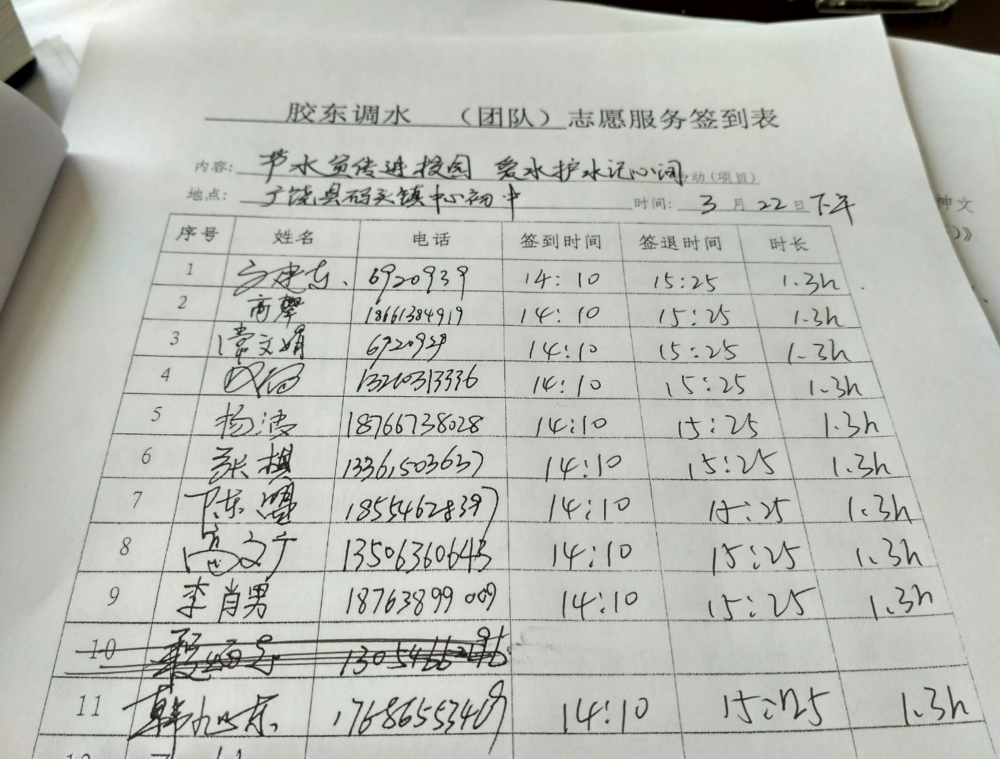 胶东调水 （团队）志愿服务签到表
内容： 节水宣传进校园 爱水护水记心间 活动（项目）
地点： 广饶县码头镇中心初中 时间： 3 月 22 日 下午
序号 姓名 电话 签到时间 签退时间 时长
1 6920939 14:10 15:25 1.3h
2 商攀 18661384919 14:10 15:25 1.3h
3 常文娟 6920929 14:10 15:25 1.3h
4 13210313336 14:10 15:25 1.3h
5 杨涛 18766738028 14:10 15:25 1.3h
6 张棋 13361503637 14:10 15:25 1.3h
7 陈盟 18554628397 14:10 15:25 1.3h
8 高文于 13506360643 14:10 15:25 1.3h
9 李肖男 18763899009 14:10 15:25 1.3h
10
11 17686553409 14:10 15:25 1.3h
神文
》